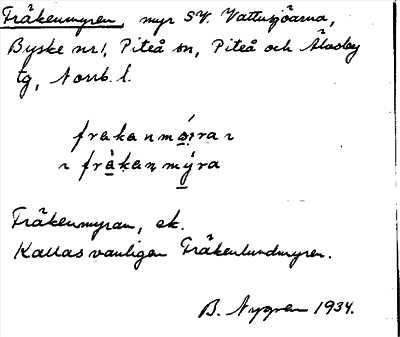 Fräkenmyren, myr SV. Vattusjöarna,
Byske nr 1, Piteå sn, Piteå och Älvsby
tg, Norrb. l.
Fräkenmyran, ek.
Kallas vanligen Fräkenlundmyren.
B. Nygren 1934.